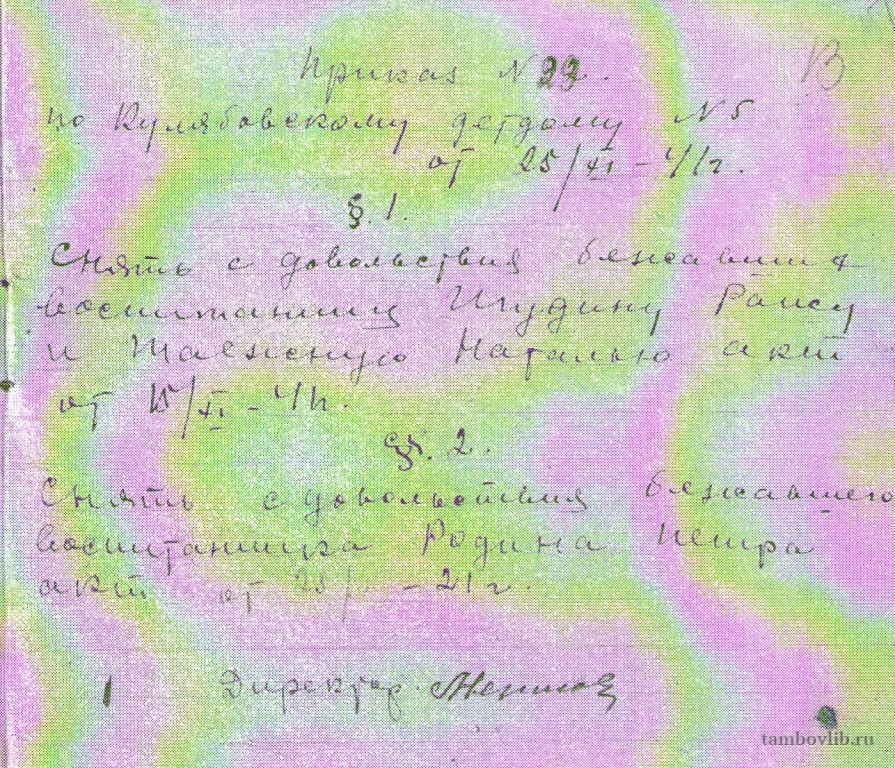 Приказ № 22.
по Кулябовскому детдому № 5
от 25/XI – 41г.
§. 1.
Снять с довольствия бежавших
воспитанниц Раису
и Таежную Наталью акт
от 15/XI – 41г.
§. 2.
Снять с довольствия бежавшего
воспитанника Родина Петра
акт от г.
Директор
tambovlib.ru